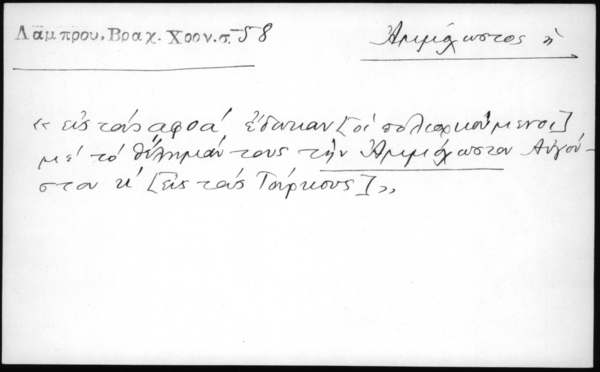 Λάμπρου, Βραχ. Χρον. σ. 58
Ἀμμόχωστος ἡ
« εἰς τὰς αφοα΄ ἔδωκαν [οἱ πολιορκούμενοι]
μὲ τὸ θέλημάν τους τὴν Ἀμμόχωστον Αὐγού-
στου κ΄ [εἰς τοὺς Τούρκους] »